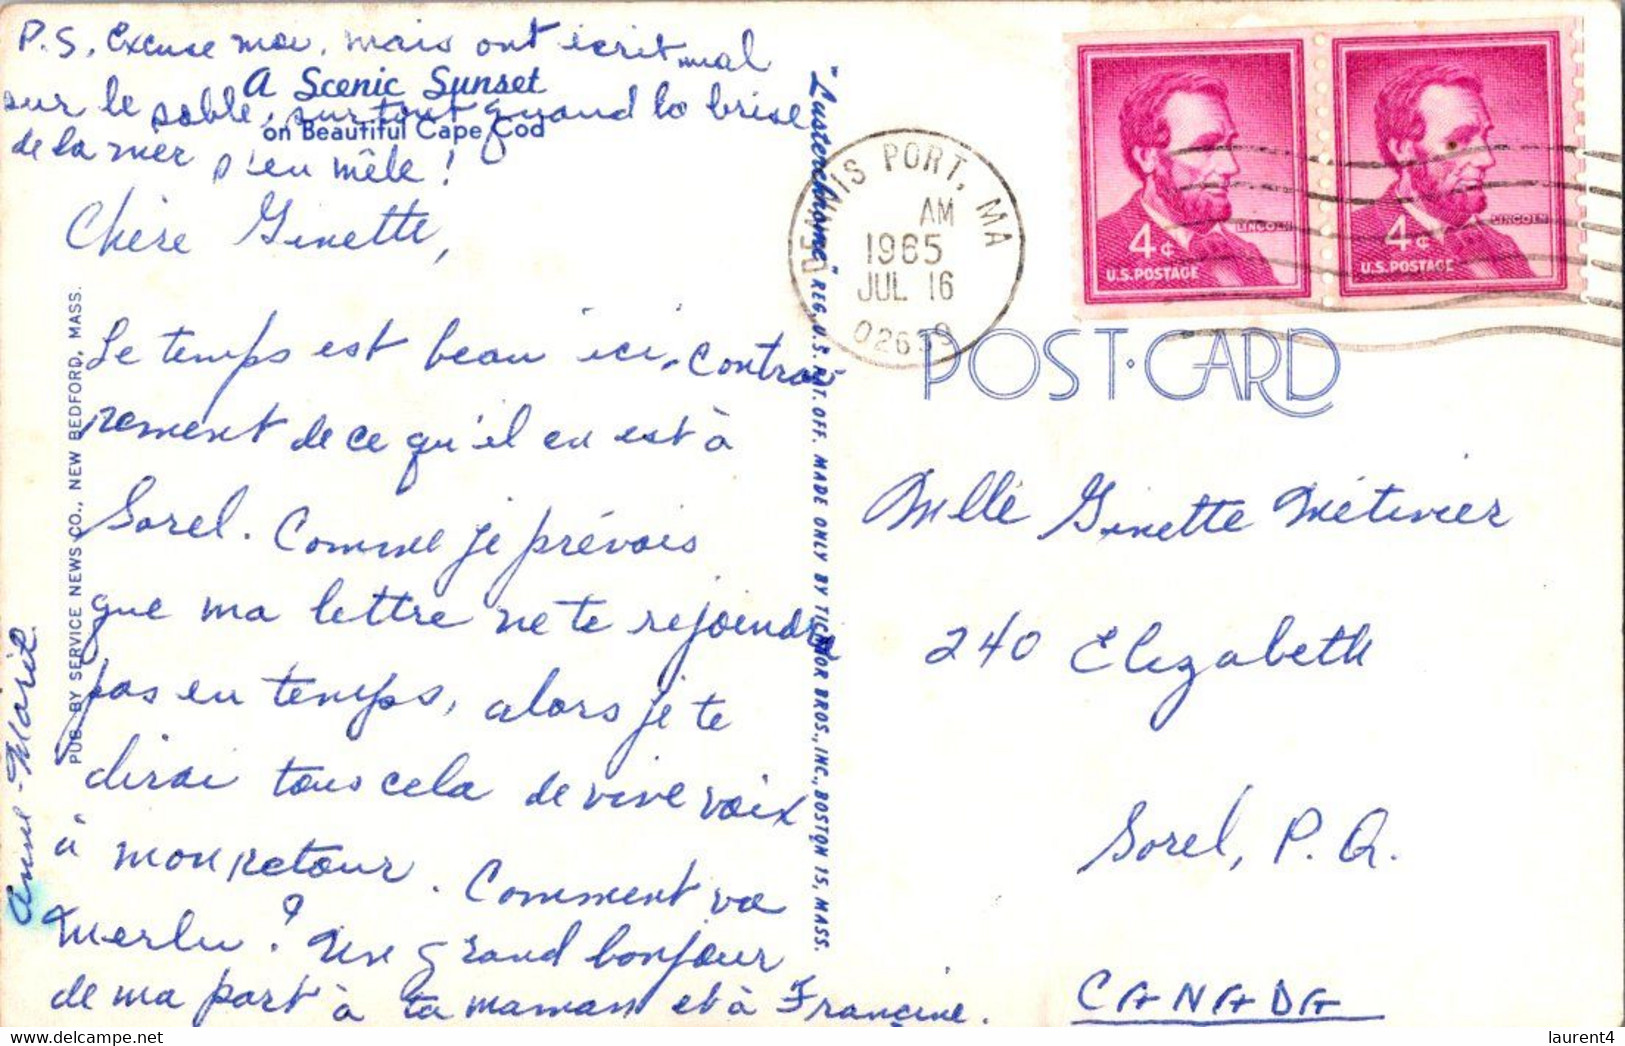 P.S. Excuse moi, mais ont écrit mal
sur le sable, surtout quand la brise
de la mer s'en mêle!
A Scenic Sunset
on Beautiful Cape Cod
Chère Ginette,
Le temps est beau ici, contrai-
rement de ce qu'il en est à
Sorel. Comme je prévois
que ma lettre ne te rejoindra
pas en temps, alors je te
dirai tous cela de vive voix
à mon retour. Comment va
Merlu? Un grand bonjour
de ma part à ta maman et à Francine.
Anne-Marie
PUB. BY SERVICE NEWS CO., NEW BEDFORD, MASS.
"Lusterchrome" REG. U.S. PAT. OFF. MADE ONLY BY TICHNOR BROS., INC., BOSTON 15, MASS.
DENNIS PORT, MA
AM
1965
JUL 16
02639
4¢
LINCOLN
U.S. POSTAGE
4¢
LINCOLN
U.S. POSTAGE
POST·CARD
Mlle Ginette Métivier
240 Elizabeth
Sorel, P.Q.
CANADA
laurent4